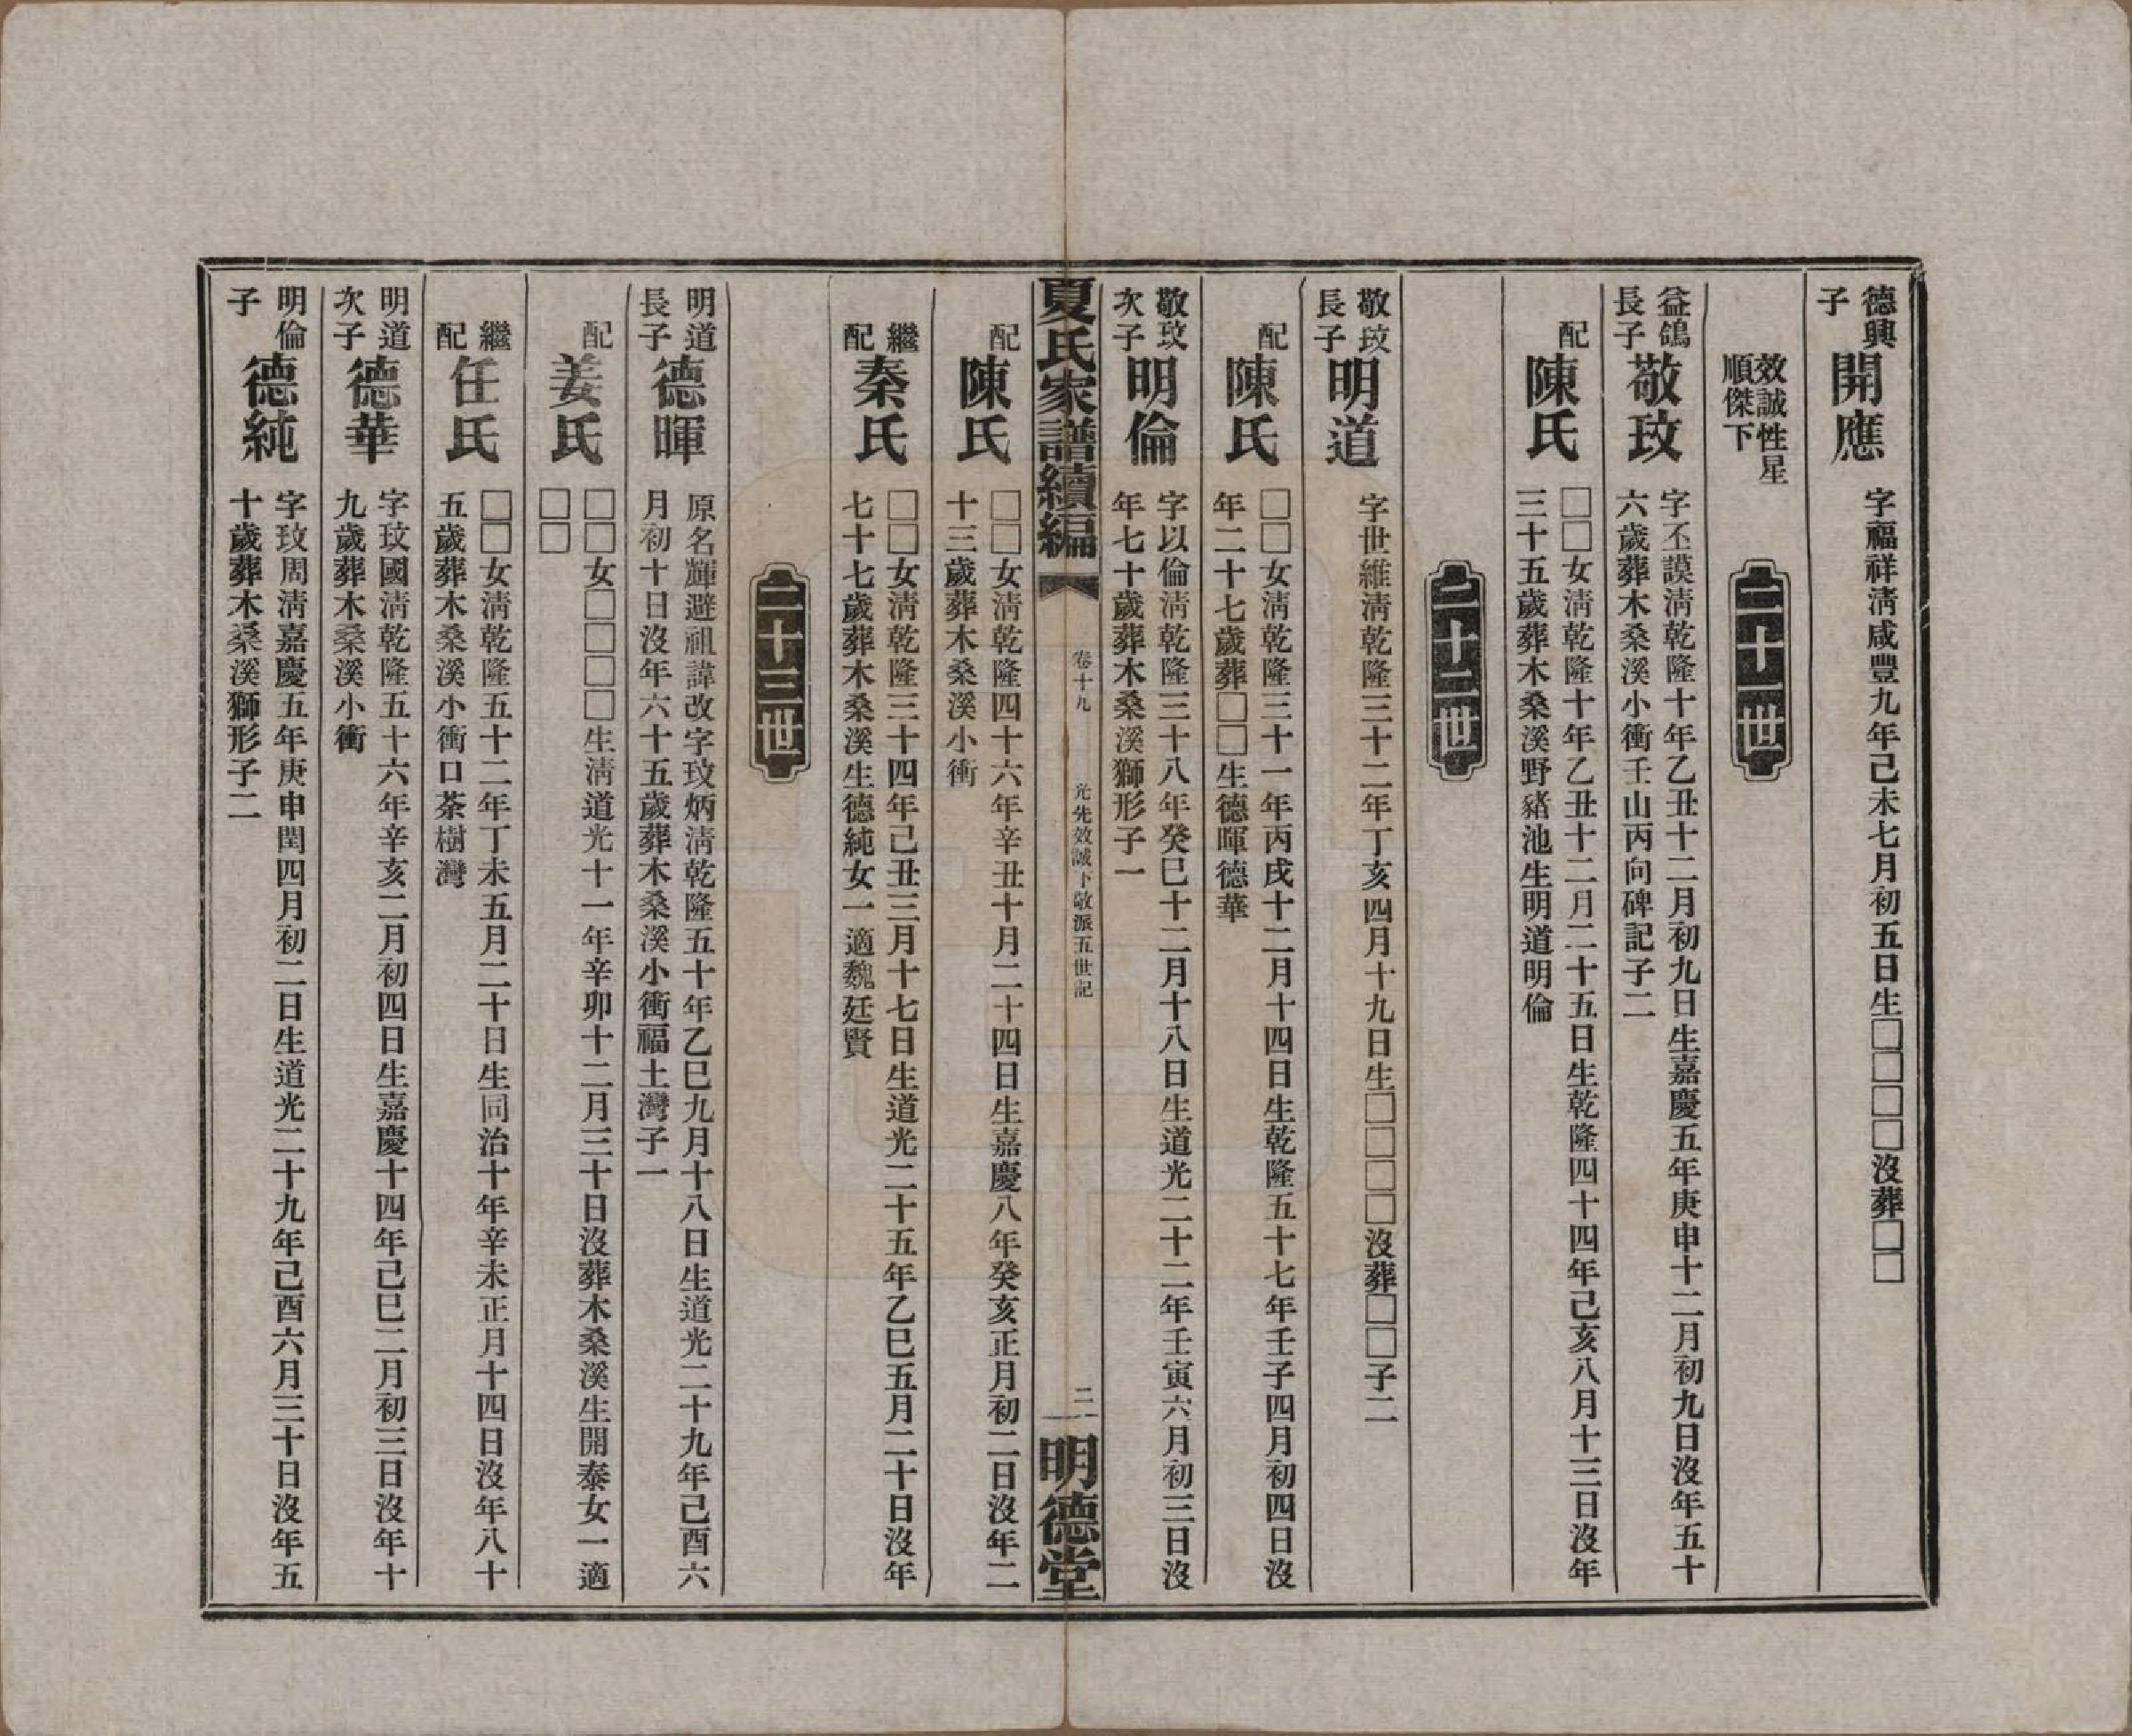 德興
子
開應
字福祥淸咸豐九年己未七月初五日生□□□□沒葬□□
效誠性星
順傑下
二十一世
益鴿
長子
敬玟
字丕謨淸乾隆十年乙丑十二月初九日生嘉慶五年庚申十二月初九日沒年五十
六歲葬木桑溪小衝壬山丙向碑記子二
配
陳氏
□□女淸乾隆十年乙丑十二月二十五日生乾隆四十四年己亥八月十三日沒年
三十五歲葬木桑溪野豬池生明道明倫
二十二世
敬玟
長子
明道
字世維淸乾隆三十二年丁亥四月十九日生□□□□沒葬□□子二
配
陳氏
□□女淸乾隆三十一年丙戌十二月十四日生乾隆五十七年壬子四月初四日沒
年二十七歲葬□□生德暉德華
敬玟
次子
明倫
字以倫淸乾隆三十八年癸巳十二月十八日生道光二十二年壬寅六月初三日沒
年七十歲葬木桑溪獅形子一
夏氏家譜續編
卷十九
光先效誠下敬派五世記
二
明德堂
配
陳氏
□□女淸乾隆四十六年辛丑十月二十四日生嘉慶八年癸亥正月初二日沒年二
十三歲葬木桑溪小衝
繼
配
秦氏
□□女淸乾隆三十四年己丑三月十七日生道光二十五年乙巳五月二十日沒年
七十七歲葬木桑溪生德純女一適魏廷賢
二十三世
明道
長子
德暉
原名輝避祖諱改字玟炳淸乾隆五十年乙巳九月十八日生道光二十九年己酉六
月初十日沒年六十五歲葬木桑溪小衝福土灣子一
配
姜氏
□□女□□□□生淸道光十一年辛卯十二月三十日沒葬木桑溪生開泰女一適
□□
繼
配
任氏
□□女淸乾隆五十二年丁未五月二十日生同治十年辛未正月十四日沒年八十
五歲葬木桑溪小衝口茶樹灣
明道
次子
德華
字玟國淸乾隆五十六年辛亥二月初四日生嘉慶十四年己巳二月初三日沒年十
九歲葬木桑溪小衝
明倫
子
德純
字玟周淸嘉慶五年庚申閏四月初二日生道光二十九年己酉六月三十日沒年五
十歲葬木桑溪獅形子二